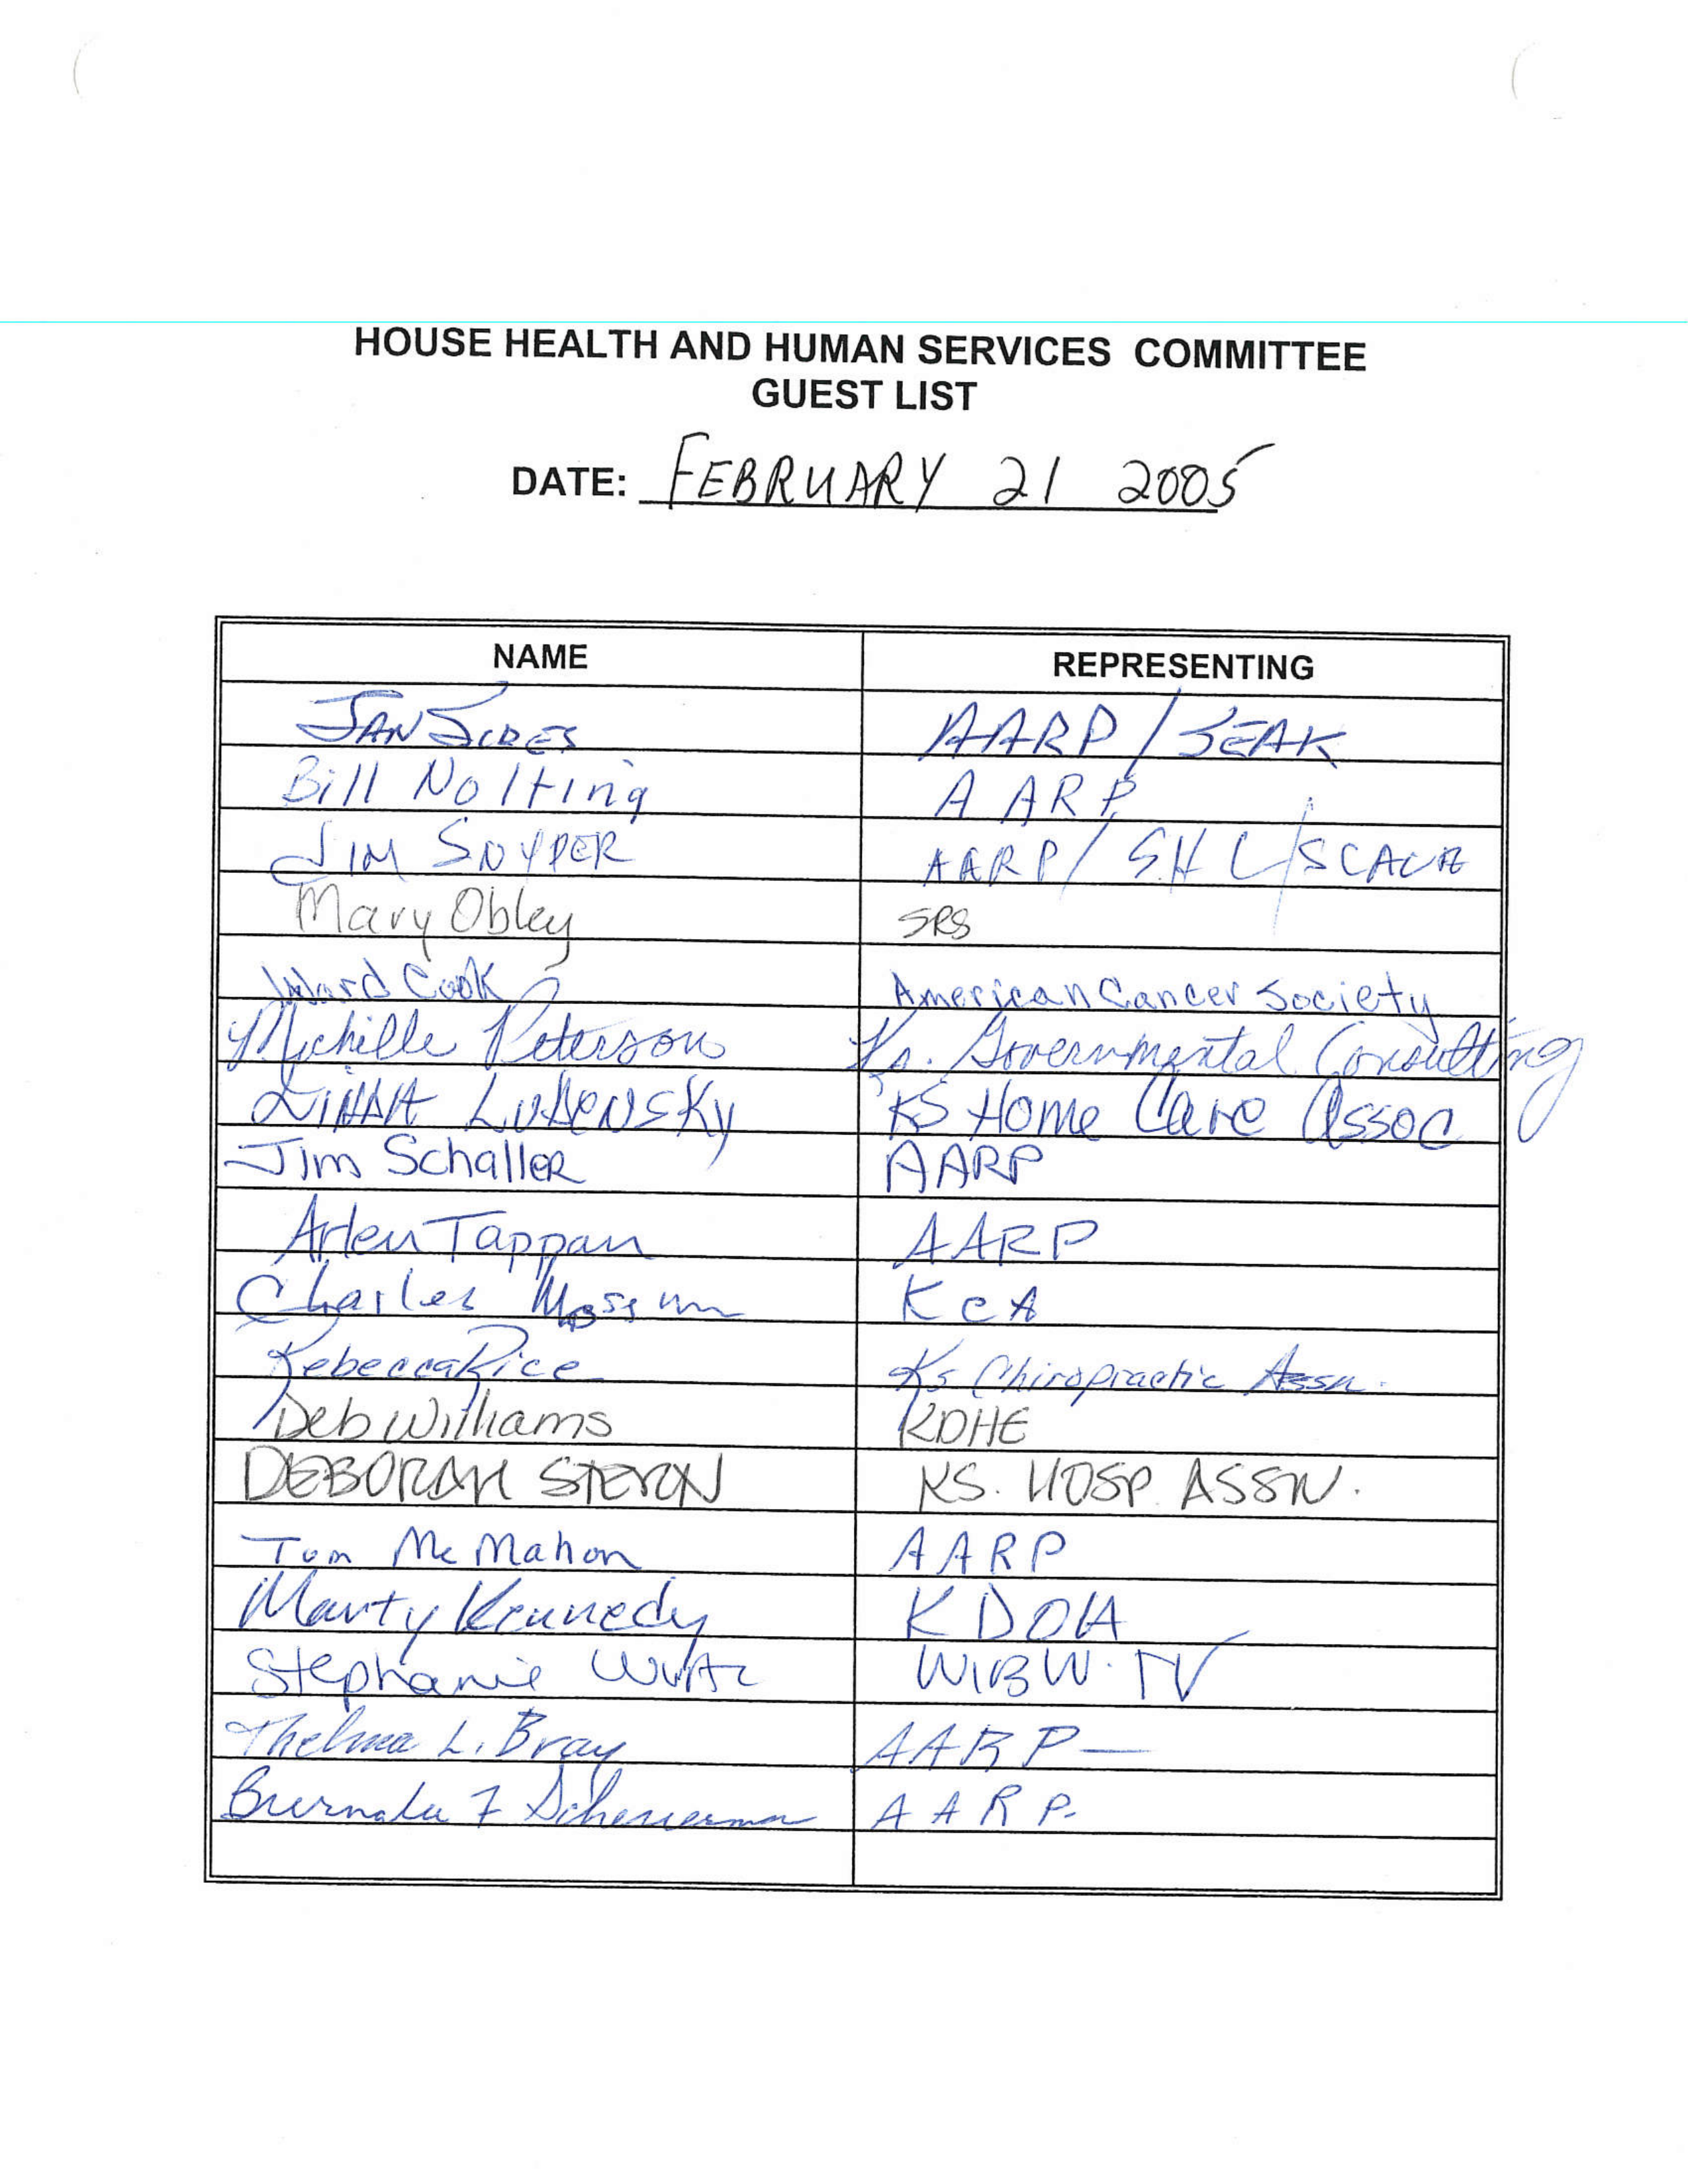 HOUSE HEALTH AND HUMAN SERVICES COMMITTEE
GUEST LIST
DATE: FEBRUARY 21 2005
NAME REPRESENTING
JAN AARP / SEAK
Bill Nolting AARP
JIM SNYDER AARP / SHL /
Mary Obley SRS
Ward Cook American Cancer Society
Michelle Peterson Ks. Governmental Consulting
LINDA LUBENSKY KS Home Care Assoc
Jim Schaller AARP
Arlen Tappan AARP
Charles KCA
Rebecca Rice Ks Chiropractic Assn.
Deb Williams KDHE
DEBORAH STERN KS. HOSP. ASSN.
Tom McMahon AARP
Marty Kennedy KDOA
Stephanie WIBW-TV
Thelma L. Bray AARP—
F AARP.